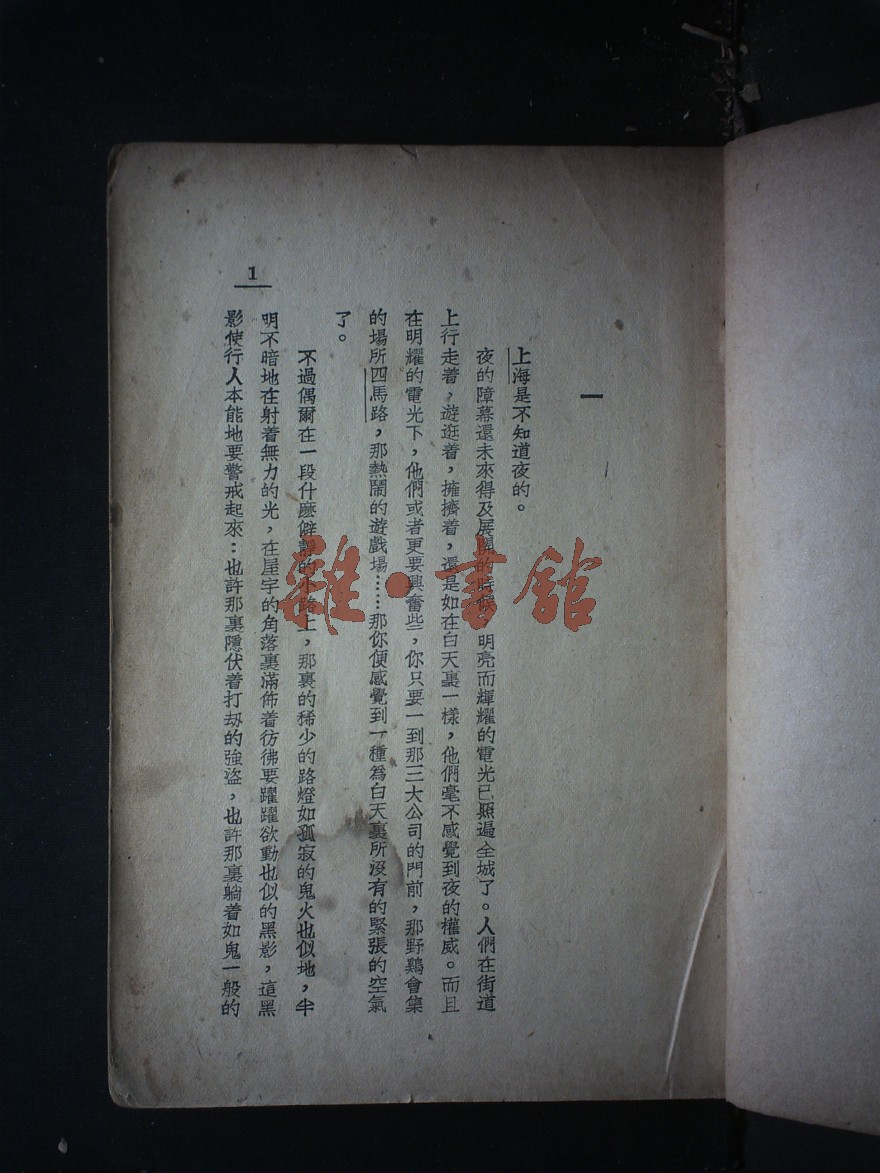 一
上海是不知道夜的。
夜的障幕還未來得及展開的時候，明亮而輝耀的電光已照遍全城了。人們在街道
上行走着，遊逛着，擁擠着，還是如在白天裏一樣，他們毫不感覺到夜的權威。而且
在明耀的電光下，他們或者更要興奮些，你只要一到那三大公司的門前，那野鷄會集
的場所四馬路，那熱鬧的遊戲場……那你便感覺到一種爲白天裏所沒有的緊張的空氣
了。
不過偶爾在一段什麽僻靜的小路上，那裏的稀少的路燈如孤寂的鬼火也似地，半
明不暗地在射着無力的光，在屋宇的角落裏滿佈着彷彿要躍躍欲動也似的黑影，這黑
影使行人本能地要警戒起來：也許那裏隱伏着打刼的強盜，也許那裏躺着如鬼一般的
1
雜·書館